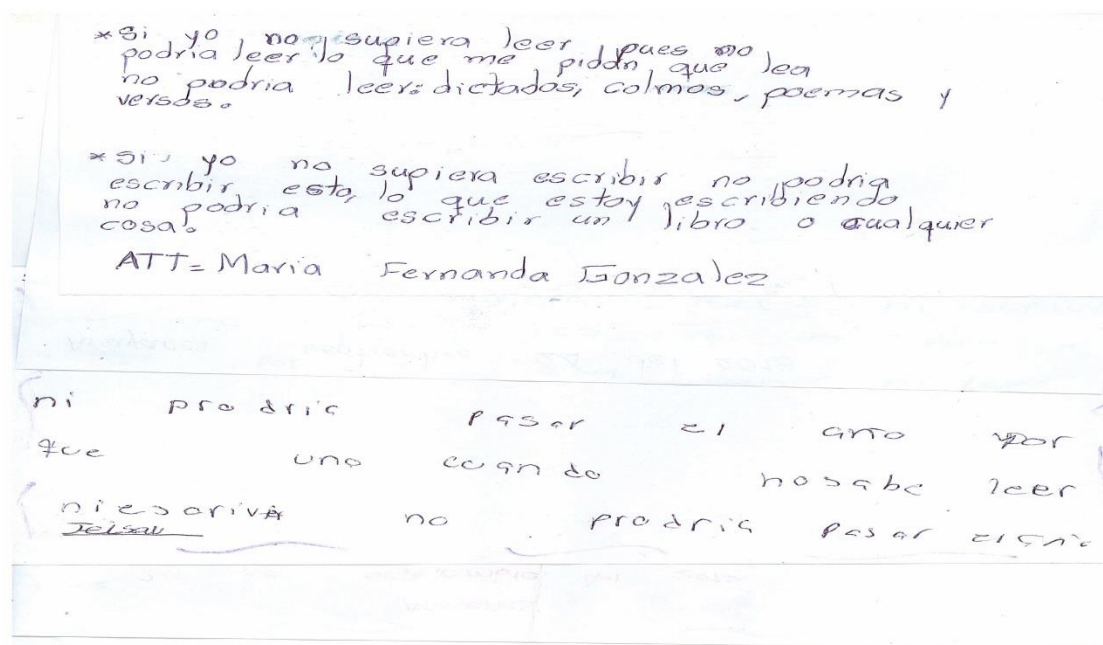 *Si yo no supiera leer pues no
podria leer lo que me pidan que lea
no podria leer: dictados, colmos, poemas y
versos.
*Si yo no supiera escribir no podria
escribir esto, lo que estoy escribiendo
no podria escribir un libro o cualquier
cosa.
ATT= Maria Fernanda Gonzalez
ni prodria pasar el año por
que uno cuando nosabe leer
ni no prodria pasar elaño